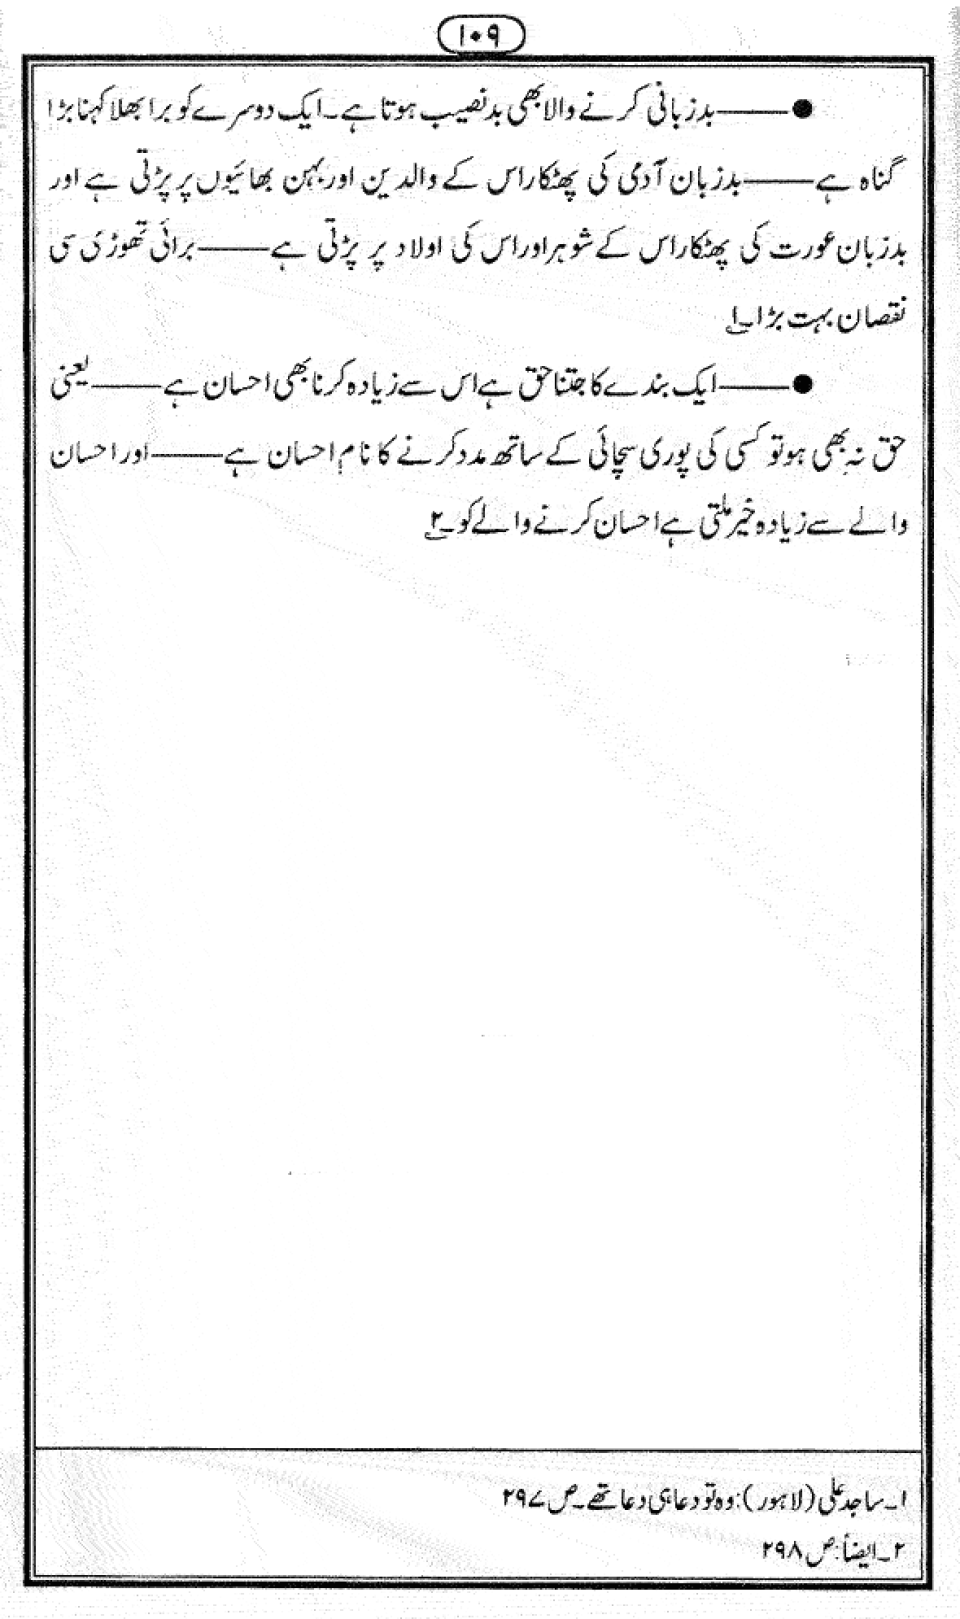 ۱۰۹
●——— بدزبانی کرنے والا بھی بدنصیب ہوتا ہے۔ ایک دوسرے کو برا بھلا کہنا بڑا
گناہ ہے——— بدزبان آدمی کی پھٹکار اس کے والدین اور بہن بھائیوں پر پڑتی ہے اور
بدزبان عورت کی پھٹکار اس کے شوہر اور اس کی اولاد پر پڑتی ہے——— برائی تھوڑی سی
نقصان بہت بڑا۔۱
●——— ایک بندے کا جتنا حق ہے اس سے زیادہ کرنا بھی احسان ہے——— یعنی
حق نہ بھی ہو تو کسی کی پوری سچائی کے ساتھ مدد کرنے کا نام احسان ہے——— اور احسان
والے سے زیادہ خیر ملتی ہے احسان کرنے والے کو۔۲
۱۔ ساجد علی (لاہور): وہ تو دعا ہی دعا تھے۔ ص ۲۹۷
۲۔ ایضاً: ص ۲۹۸